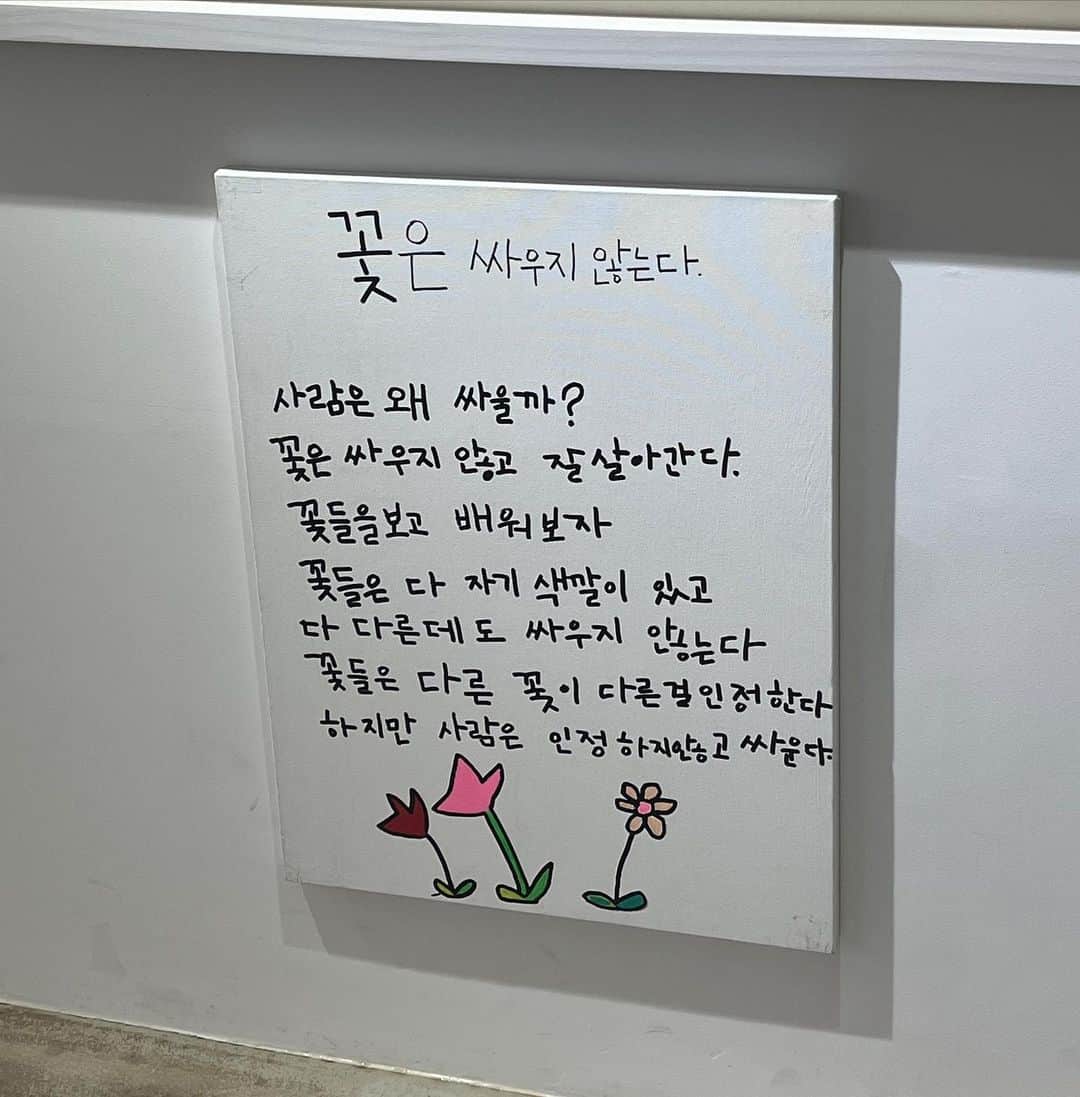 꽃은 싸우지 않는다.
사람은 왜 싸울까?
꽃은 싸우지 않고 잘 살아간다.
꽃들을보고 배워보자
꽃들은 다 자기 색깔이 있고
다 다른데도 싸우지 않는다
꽃들은 다른 꽃이 다른걸인정한다
하지만 사람은 인정하지않고 싸운다.